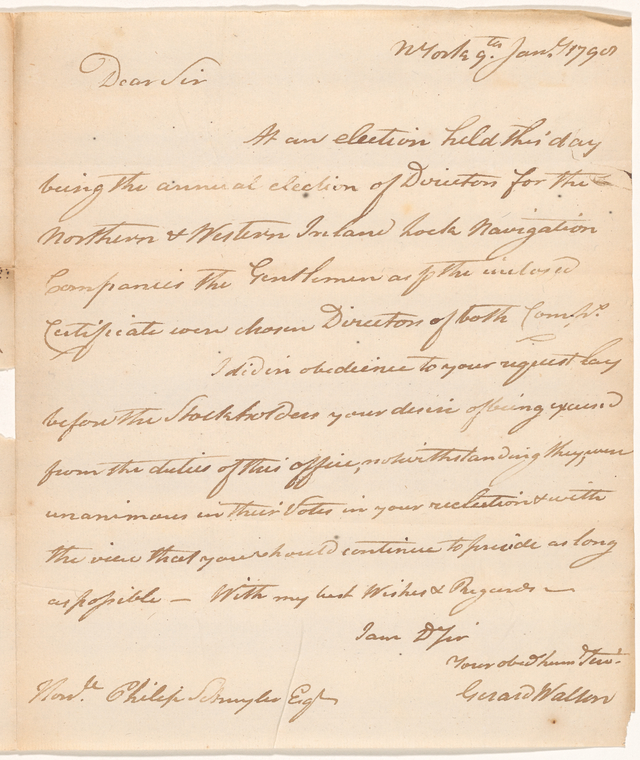 NYork 9th. Jany. 1798
Dear Sir
At an election held this day
being the annual election of Directors for the
Northern & Western Inland Lock Navigation
Companies the Gentlemen as p the inclosed
Certificate were chosen Directors of both Comps.
I did in obedience to your request lay
before the Stockholders your desire of being excused
from the duties of this office, notwithstanding they were
unanimous in their Votes in your reelection & with
the view that you should continue to preside as long
as possible — With my best Wishes & Regards —
I am D Sir
Your obed hum Serv.
Gerard Walton
Honble. Philip Schuyler Esqr.